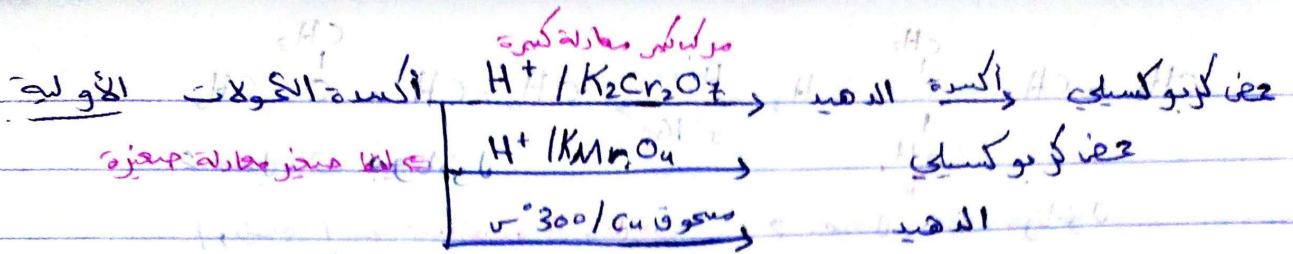 مركب كبير معادلة كبيرة
أكسدة الكحولات الأولية H⁺/K₂Cr₂O₇ الدهيد أكسدة حمض كربوكسيلي
صغير معادلة صغيرة H⁺/KMnO₄ حمض كربوكسيلي
مسحوق Cu/300°س الدهيد